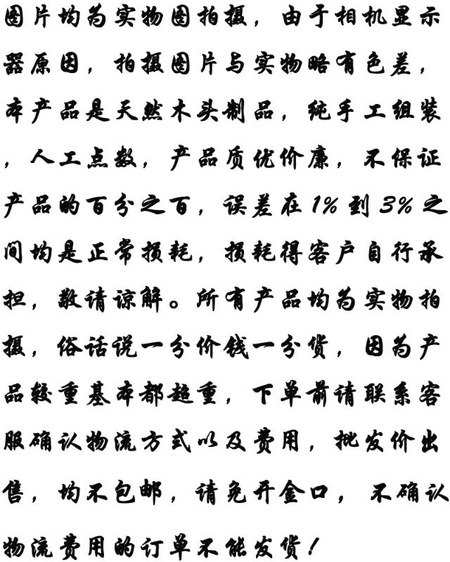 图片均为实物图拍摄，由于相机显示
器原因，拍摄图片与实物略有色差，
本产品是天然木头制品，纯手工组装
，人工点数，产品质优价廉，不保证
产品的百分之百，误差在1%到3%之
间均是正常损耗，损耗得客户自行承
担，敬请谅解。所有产品均为实物拍
摄，俗话说一分价钱一分货，因为产
品较重基本都超重，下单前请联系客
服确认物流方式以及费用，批发价出
售，均不包邮，请免开金口，不确认
物流费用的订单不能发货！